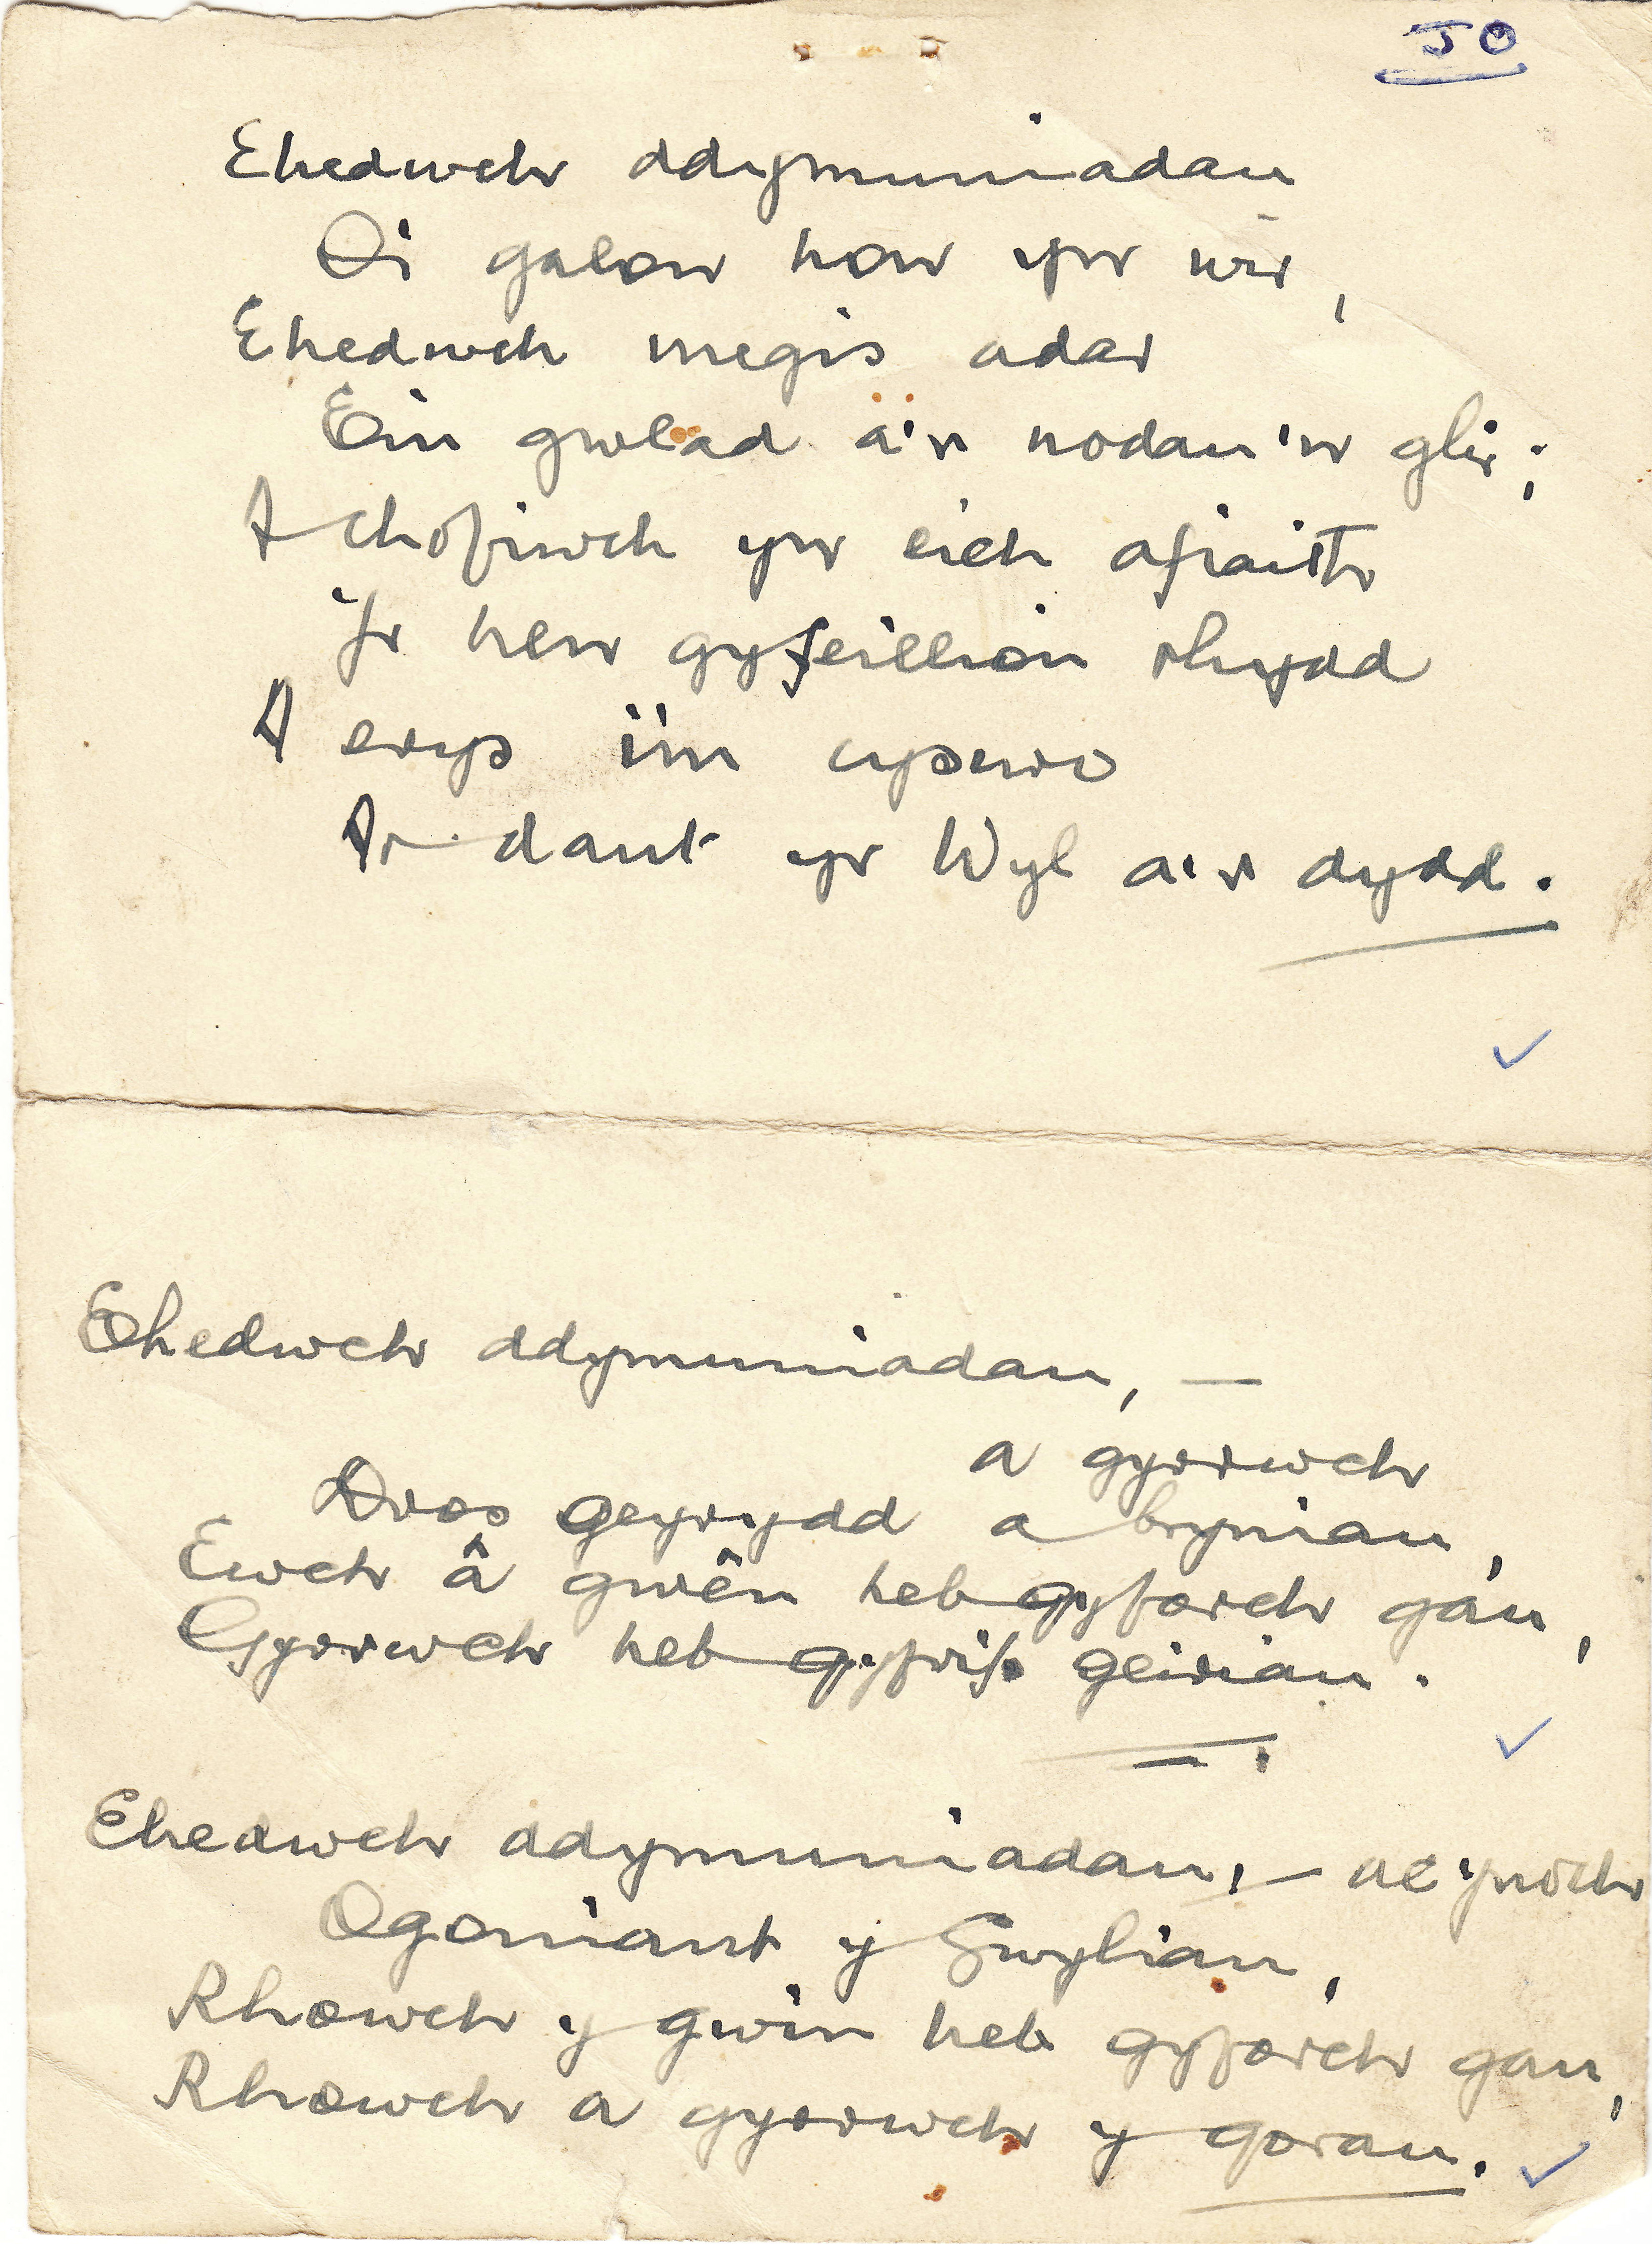 50
Ehedwch ddymuniadau
O'i galon hon yn wir,
Ehedwch megis adar
Ein gwlad a'n nodau'n glir;
A chofiwch yn eich afiaith
Yr hen gyfeillion rhydd
A erys im cysuro
Ar dant yr Wyl a'r dydd.
Ehedwch ddymuniadau, —
a gyrrwch
Dros geyrydd a bryniau,
Ewch â gwên heb gyfarch gau,
Gyrrwch heb gyfrif geiriau.
Ehedwch ddymuniadau, — ac
Ogoniant y Gwyliau,
Rhowch y gwin heb gyfarch gau,
Rhowch a gyrrwch y gorau.